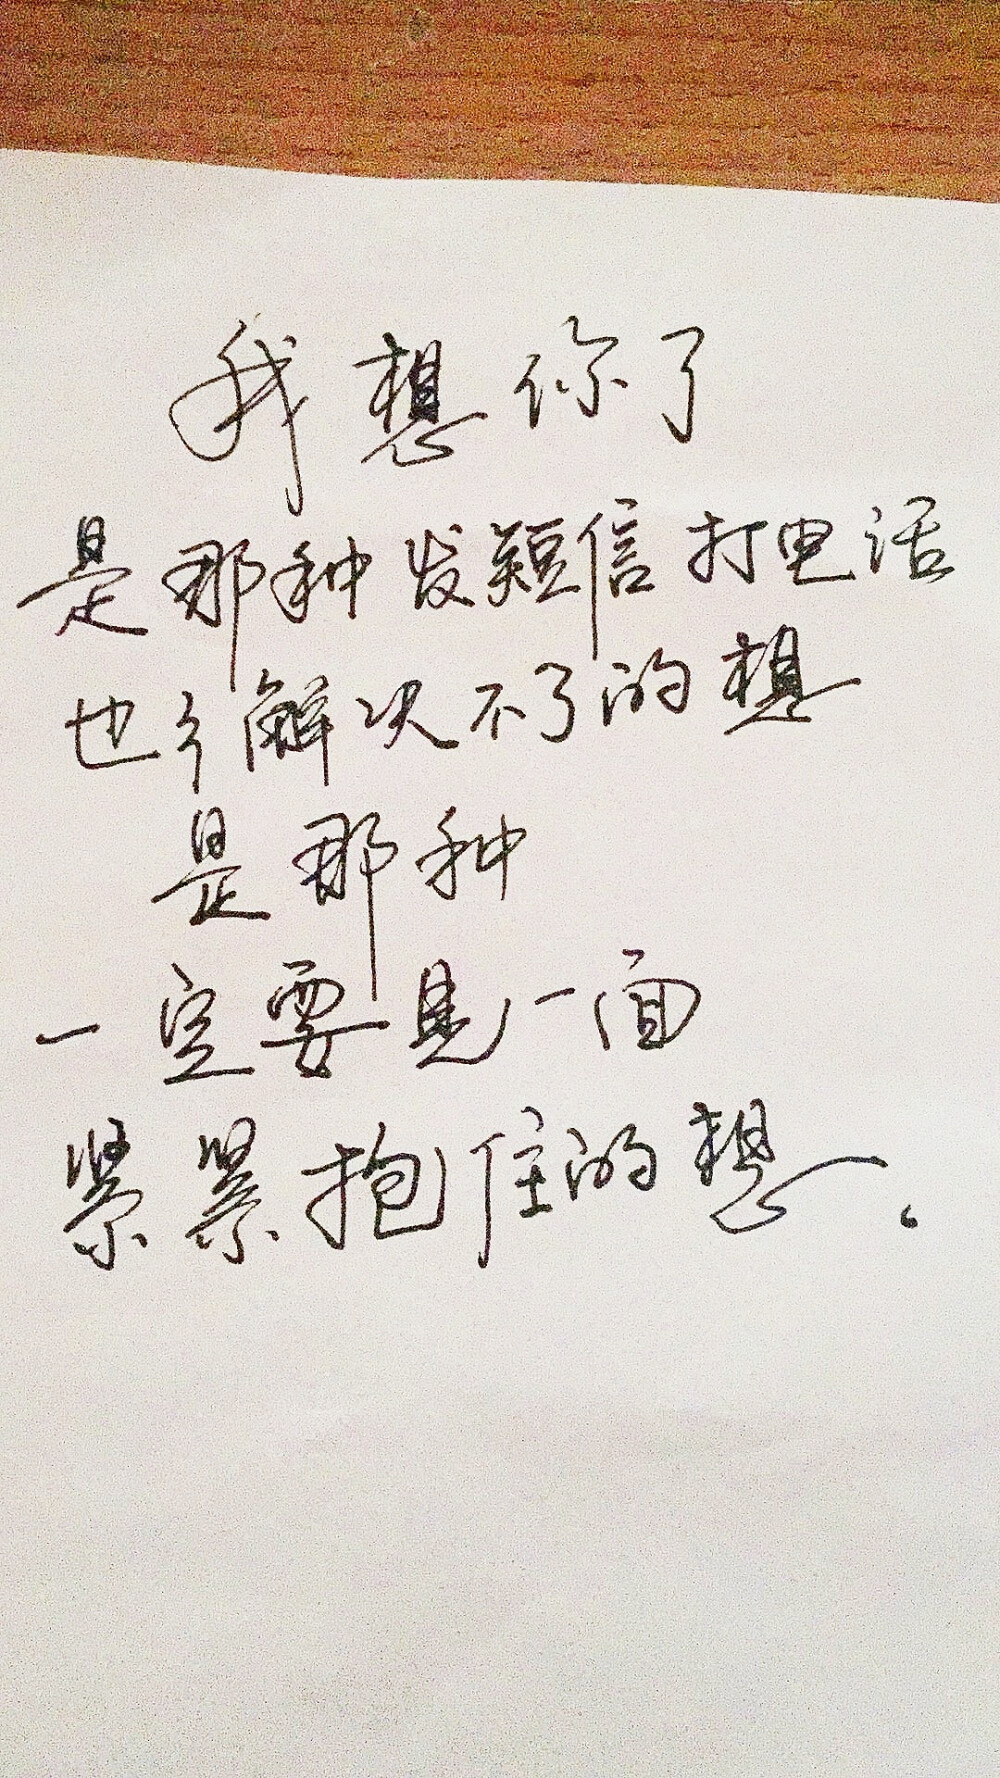 我想你了
是那种发短信打电话
也解决不了的想
是那种
一定要见一面
紧紧抱住的想。